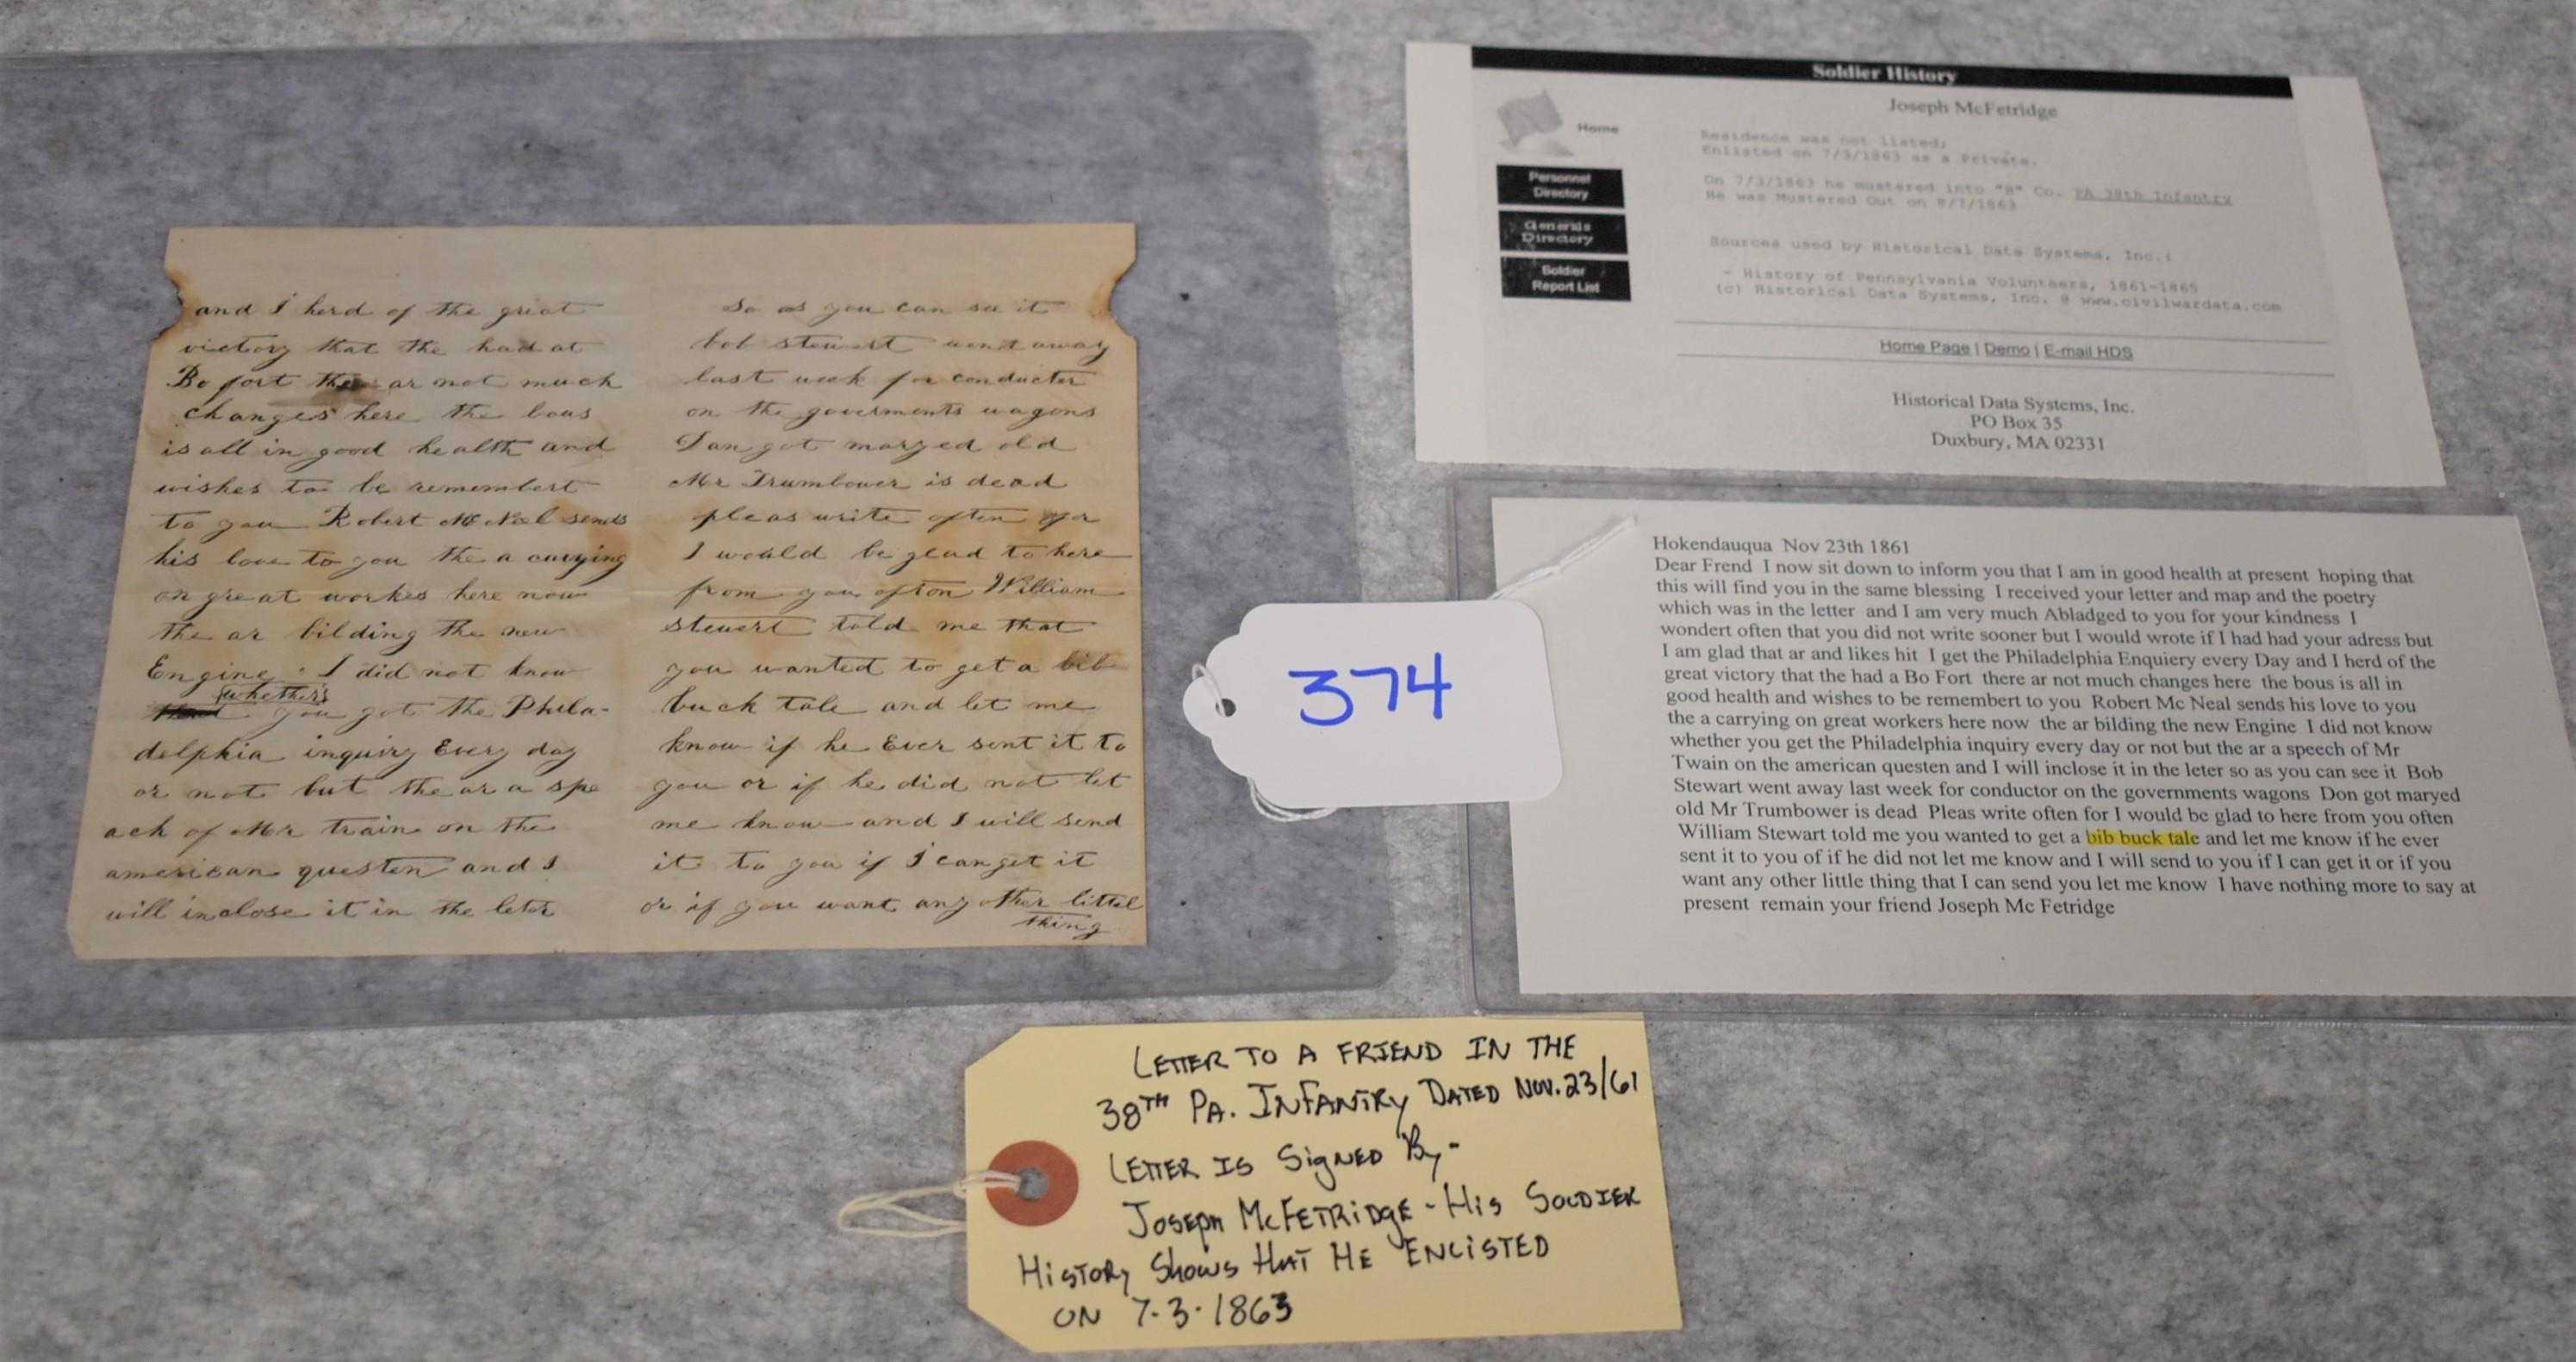 and I herd of the great
victory that the had at
Bo fort the ar not much
changes here the bous
is all in good health and
wishes to be remembert
to you Robert Mc Neel sends
his love to you the a carrying
on great workes here now
the ar bilding the new
Engine I did not know
whether
you got the Phila-
delphia inquiry Every day
or not but the ar a spe
ach of Mr train on the
american questen and I
will inclose it in the leter
So as you can see it
bob stewert went away
last week for conducter
on the goverments wagons
Dan got maryed old
Mr Trumbower is dead
pleas write often for
I would be glad to here
from you ofton William
stewert told me that
you wanted to get a bib
buck tale and let me
know if he Ever sent it to
you or if he did not let
me know and I will send
it to you if I can get it
or if you want any other littel
thing
Soldier History
Joseph McFetridge
Home
Personnel
Directory
Generals
Directory
Soldier
Report List
Residence was not listed;
Enlisted on 7/3/1863 as a Private.
On 7/3/1863 he mustered into "B" Co. PA 38th Infantry
He was Mustered Out on 8/7/1863
Sources used by Historical Data Systems, Inc.:
- History of Pennsylvania Volunteers, 1861-1865
(c) Historical Data Systems, Inc. @ www.civilwardata.com
Home Page | Demo | E-mail HDS
Historical Data Systems, Inc.
PO Box 35
Duxbury, MA 02331
374
Hokendauqua Nov 23th 1861
Dear Frend I now sit down to inform you that I am in good health at present hoping that
this will find you in the same blessing I received your letter and map and the poetry
which was in the letter and I am very much Abladged to you for your kindness I
wondert often that you did not write sooner but I would wrote if I had had your adress but
I am glad that ar and likes hit I get the Philadelphia Enquiery every Day and I herd of the
great victory that the had a Bo Fort there ar not much changes here the bous is all in
good health and wishes to be remembert to you Robert Mc Neal sends his love to you
the a carrying on great workers here now the ar bilding the new Engine I did not know
whether you get the Philadelphia inquiry every day or not but the ar a speech of Mr
Twain on the american questen and I will inclose it in the leter so as you can see it Bob
Stewart went away last week for conductor on the governments wagons Don got maryed
old Mr Trumbower is dead Pleas write often for I would be glad to here from you often
William Stewart told me you wanted to get a bib buck tale and let me know if he ever
sent it to you of if he did not let me know and I will send to you if I can get it or if you
want any other little thing that I can send you let me know I have nothing more to say at
present remain your friend Joseph Mc Fetridge
LETTER TO A FRIEND IN THE
38TH PA. INFANTRY DATED NOV. 23/61
LETTER IS SIGNED By-
JOSEPH McFETRIDGE - HIS SOLDIER
HISTORY SHOWS THAT HE ENLISTED
ON 7-3-1863